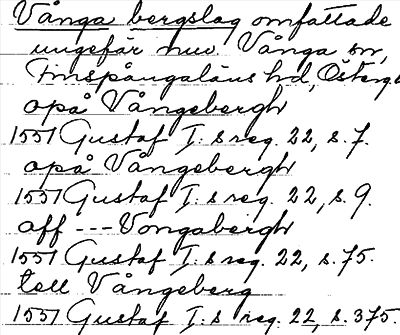 Vånga bergslag omfattade
ungefär nuv. Vånga sn,
Finspångaläns hd, Österg
opå Vångebergh
1551 Gustaf I:s reg. 22, s. 7.
opå Vångebergh
1551 Gustaf I:s reg. 22, s. 9.
aff --- Vongabergh
1551 Gustaf I:s reg. 22, s. 75.
tell Vångeberg
1551 Gustaf I:s reg. 22 s. 375.